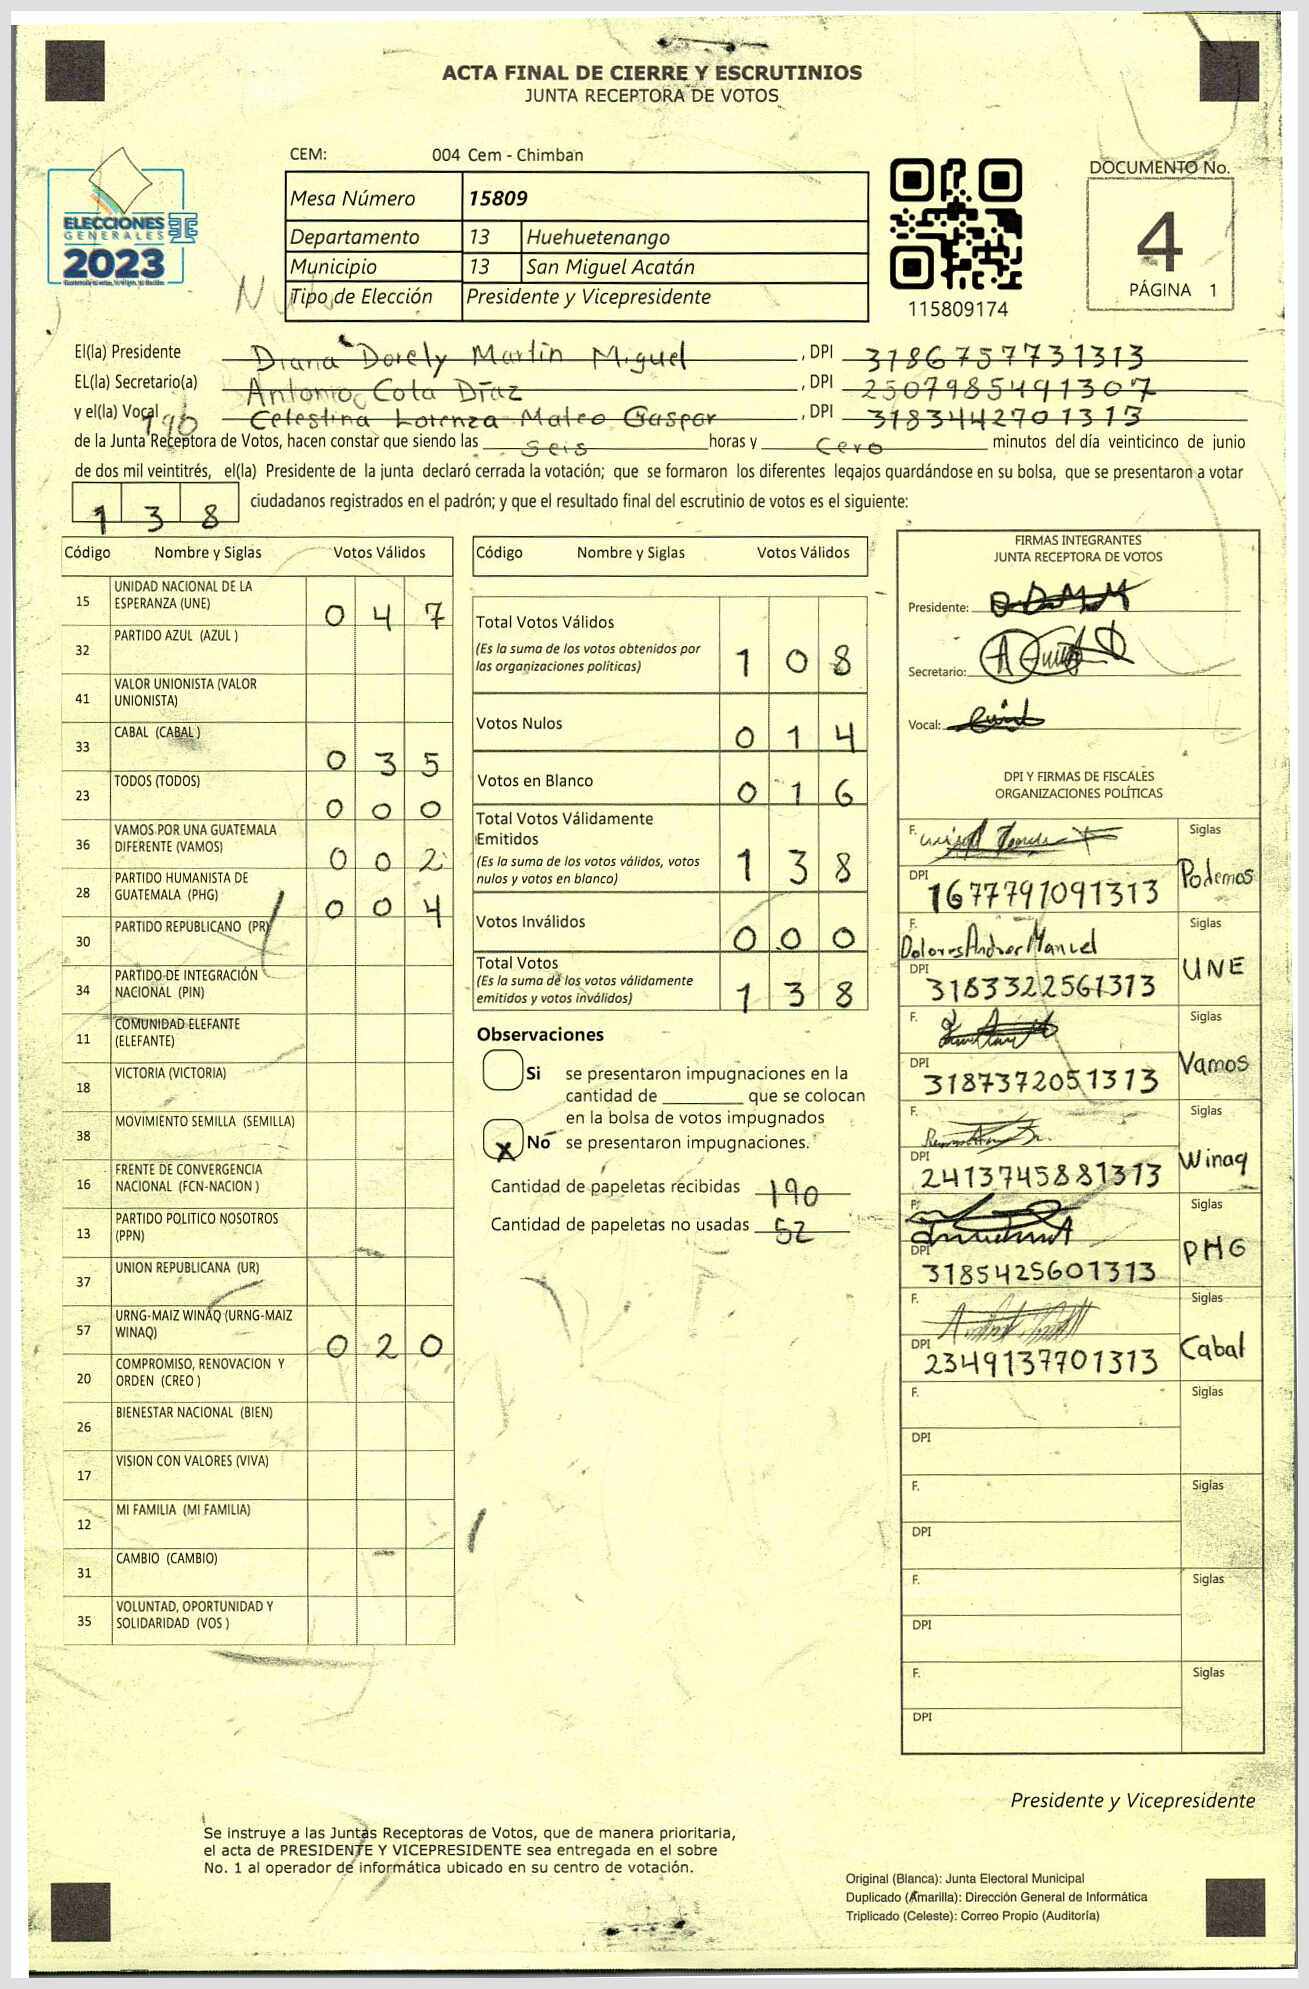 ACTA FINAL DE CIERRE Y ESCRUTINIOS
JUNTA RECEPTORA DE VOTOS
CEM: 004 Cem - Chimban
ELECCIONES
GENERALES
2023
Mesa Número 15809
Departamento 13 Huehuetenango
Municipio 13 San Miguel Acatán
Tipo de Elección Presidente y Vicepresidente
115809174
DOCUMENTO No.
4
PÁGINA 1
El(la) Presidente Diana Dorely Martin Miguel , DPI 3186757731313
EL(la) Secretario(a) Antonio Cota Díaz , DPI 2507985491307
y el(la) Vocal Celestina Lorenza Mateo Gaspar , DPI 3183442701313
190
de la Junta Receptora de Votos, hacen constar que siendo las seis horas y cero minutos del día veinticinco de junio
de dos mil veintitrés, el(la) Presidente de la junta declaró cerrada la votación; que se formaron los diferentes legajos quardándose en su bolsa, que se presentaron a votar
138 ciudadanos registrados en el padrón; y que el resultado final del escrutinio de votos es el siguiente:
Código Nombre y Siglas Votos Válidos
15 UNIDAD NACIONAL DE LA ESPERANZA (UNE) 047
32 PARTIDO AZUL (AZUL )
41 VALOR UNIONISTA (VALOR UNIONISTA)
33 CABAL (CABAL ) 035
23 TODOS (TODOS) 000
36 VAMOS POR UNA GUATEMALA DIFERENTE (VAMOS) 002
28 PARTIDO HUMANISTA DE GUATEMALA (PHG) 004
30 PARTIDO REPUBLICANO (PR)
34 PARTIDO DE INTEGRACIÓN NACIONAL (PIN)
11 COMUNIDAD ELEFANTE (ELEFANTE)
18 VICTORIA (VICTORIA)
38 MOVIMIENTO SEMILLA (SEMILLA)
16 FRENTE DE CONVERGENCIA NACIONAL (FCN-NACION )
13 PARTIDO POLITICO NOSOTROS (PPN)
37 UNION REPUBLICANA (UR)
57 URNG-MAIZ WINAQ (URNG-MAIZ WINAQ) 020
20 COMPROMISO, RENOVACION Y ORDEN (CREO )
26 BIENESTAR NACIONAL (BIEN)
17 VISION CON VALORES (VIVA)
12 MI FAMILIA (MI FAMILIA)
31 CAMBIO (CAMBIO)
35 VOLUNTAD, OPORTUNIDAD Y SOLIDARIDAD (VOS )
Código Nombre y Siglas Votos Válidos
Total Votos Válidos 108
(Es la suma de los votos obtenidos por
las organizaciones políticas)
Votos Nulos 014
Votos en Blanco 016
Total Votos Válidamente
Emitidos 138
(Es la suma de los votos válidos, votos
nulos y votos en blanco)
Votos Inválidos 000
Total Votos 138
(Es la suma de los votos válidamente
emitidos y votos inválidos)
Observaciones
Si se presentaron impugnaciones en la
cantidad de ________ que se colocan
en la bolsa de votos impugnados
x No se presentaron impugnaciones.
Cantidad de papeletas recibidas 190
Cantidad de papeletas no usadas 52
FIRMAS INTEGRANTES
JUNTA RECEPTORA DE VOTOS
Presidente: DDMM
Secretario:
Vocal:
DPI Y FIRMAS DE FISCALES
ORGANIZACIONES POLÍTICAS
F. Siglas
DPI 1677791091313 Podemos
F. Dolores Andres Manuel Siglas
DPI 3183322561313 UNE
F. Siglas
DPI 3187372051313 Vamos
F. Siglas
DPI 2413745881313 Winaq
F. Siglas
DPI 3185425601313 PHG
F. Siglas
DPI 2349137701313 Cabal
F. Siglas
DPI
F. Siglas
DPI
F. Siglas
DPI
F. Siglas
DPI
Presidente y Vicepresidente
Se instruye a las Juntas Receptoras de Votos, que de manera prioritaria,
el acta de PRESIDENTE Y VICEPRESIDENTE sea entregada en el sobre
No. 1 al operador de informática ubicado en su centro de votación.
Original (Blanca): Junta Electoral Municipal
Duplicado (Amarilla): Dirección General de Informática
Triplicado (Celeste): Correo Propio (Auditoría)